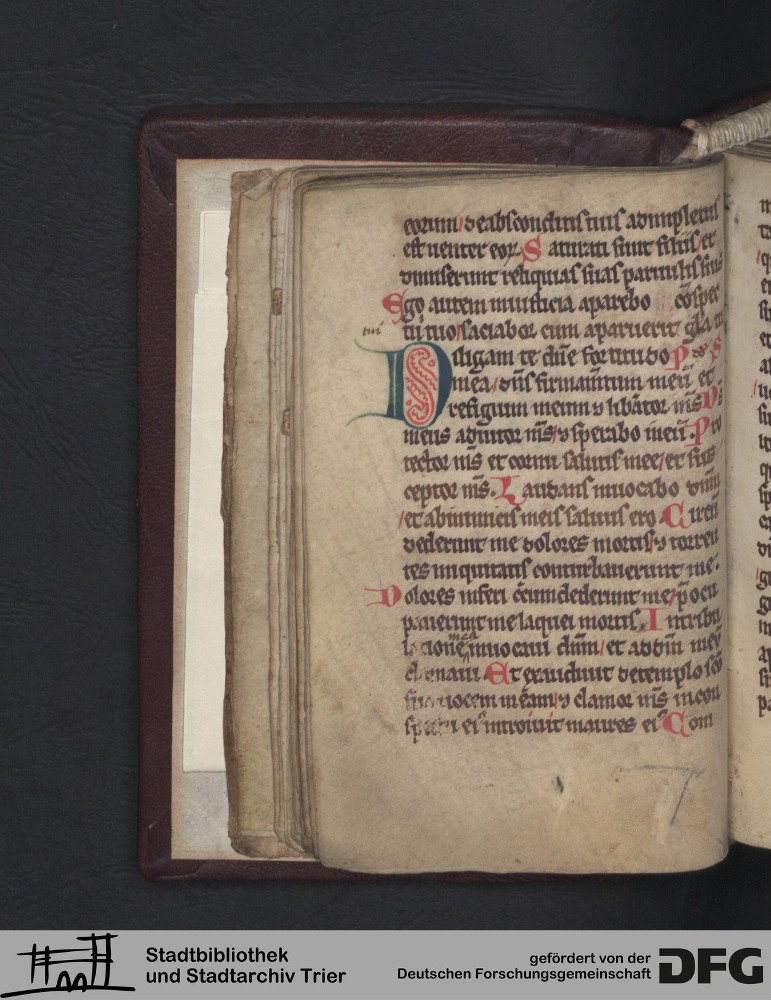 eorum / de absconditis tuis adimpletus
est uenter eoꝝ S aturati sunt filiis / et
dimiserunt reliquias suas paruulis suis
Ego autem in iusticia aparebo cōspec
tui
tu tuo / saciabor cum aparuerit gl̄a tu
Diligam te dn̄e fortitudo P S
mea / dn̄s firmam̄tum meū et
refugium meum ⁊ lib̄ator m̄s D
meus adiutor m̄s / ⁊ sperabo in eū. Pro
tector m̄s et cornu salutis mee / et sus
ceptor m̄s. L audans inuocabo dn̄m
/ et ab inimicis meis saluus ero C ircū
dederunt me dolores mortis / ⁊ torren
tes iniquitatis conturbauerunt me.
D olores inferi circumdederunt me / p̄ocu
pauerunt me laquei mortis. I n tribu
mea
lacione inuocaui dn̄m / et ad dm̄ meū
clamaui Et exaudiuit de templo sc̄o
suo uocem meam / ⁊ clamor m̄s in con
spectu ei introiuit in aures ei C om
Stadtbibliothek
und Stadtarchiv Trier
gefördert von der
Deutschen Forschungsgemeinschaft
DFG